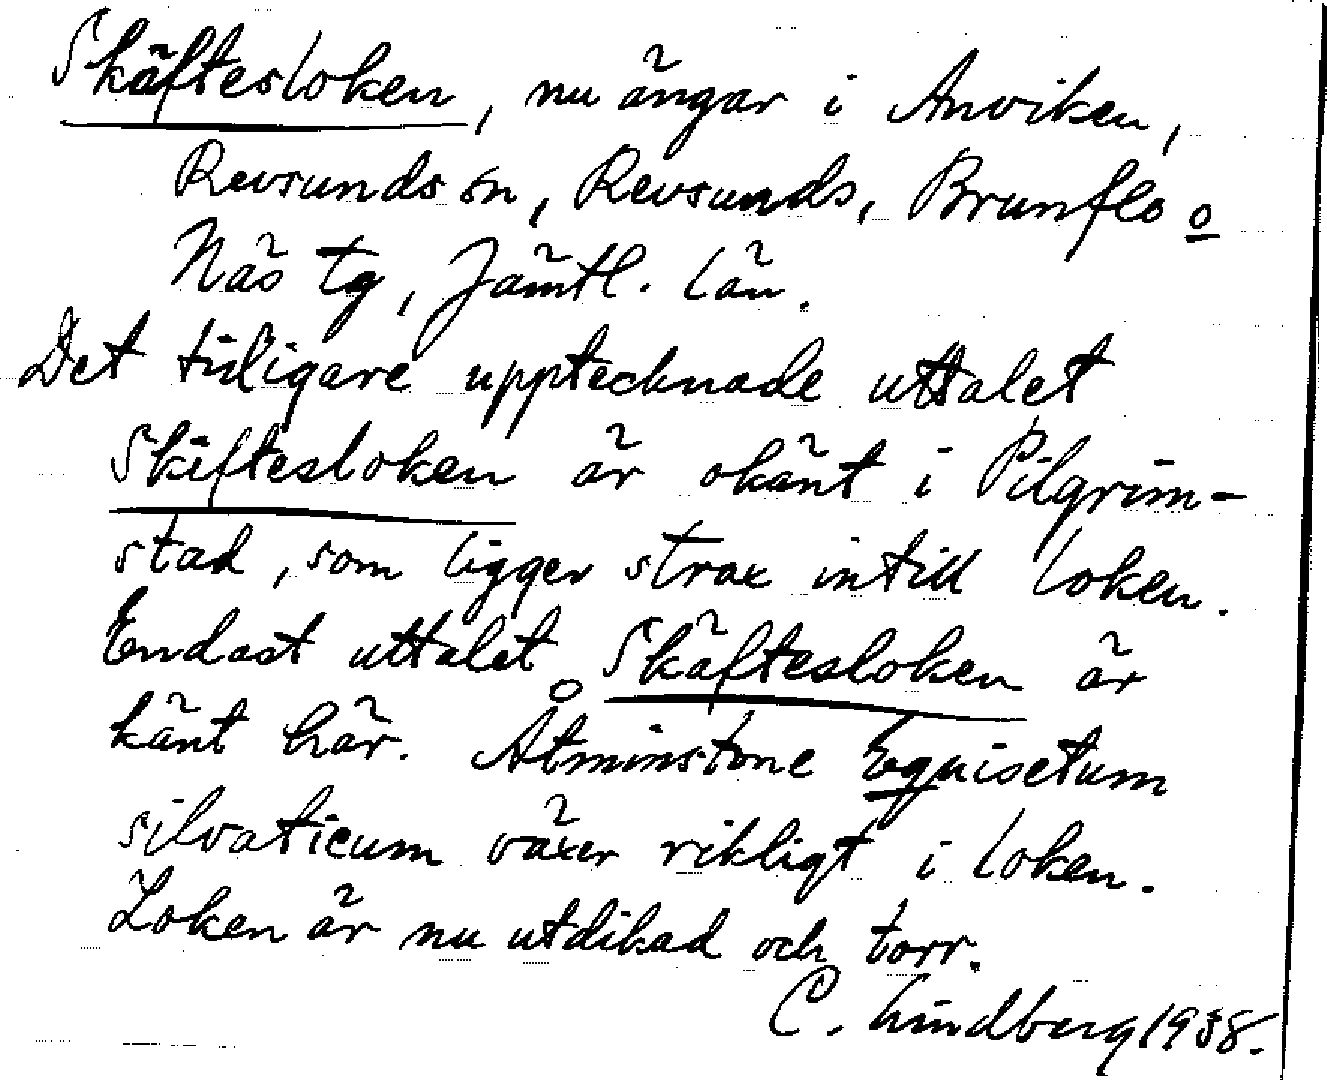 Skäftesloken, nu ängar i Anviken,
Revsunds sn, Revsunds, Brunflo o
Näs tg, Jämtl. län.
Det tidigare upptecknade uttalet
Skiftesloken är okänt i Pilgrim-
stad, som ligger strax intill loken.
Endast uttalet Skäftesloken är
känt här. Åtminstone Equisetum
silvaticum växer rikligt i loken.
Loken är nu utdikad och torr.
C. Lindberg 1938.